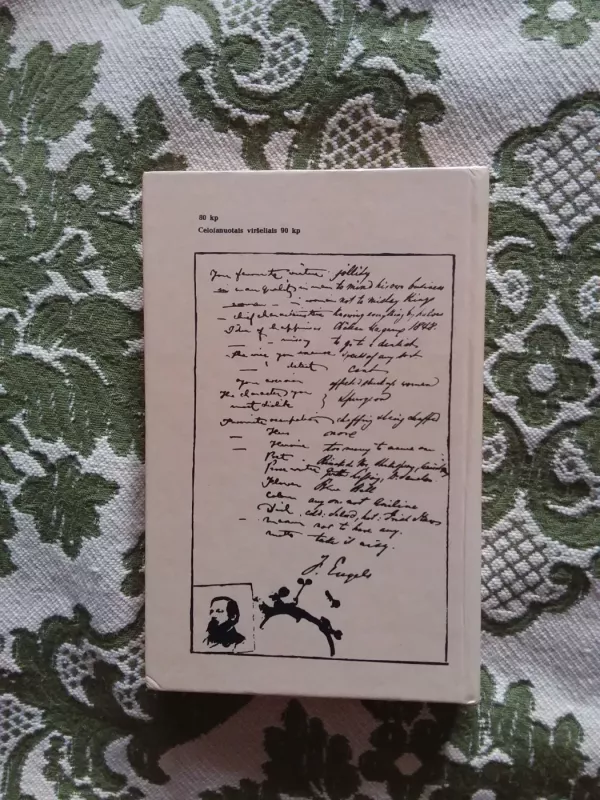 80 kp
Celofanuotais viršeliais 90 kp
Your favorite virtue jollity
— quality in man to mind his own business
— woman not to mislay things
— chief characteristic knowing everything by halves
Idea of happiness Château Margaux 1848
— misery to go to a dentist
The vice you excuse excess of any sort
— detest Cant
Your aversion affected stuck up women
The characters you most dislike } Spurgeon
Favourite occupation chaffing & being chaffed
— Hero none
— Heroine too many to name one
Poet
Prose writer Goethe, Lessing, Dr
Flower Blue Bell
Colour any one not Aniline
Dish cold: Salad, hot: Irish Stew
— maxim not to have any
motto take it easy.
F. Engels